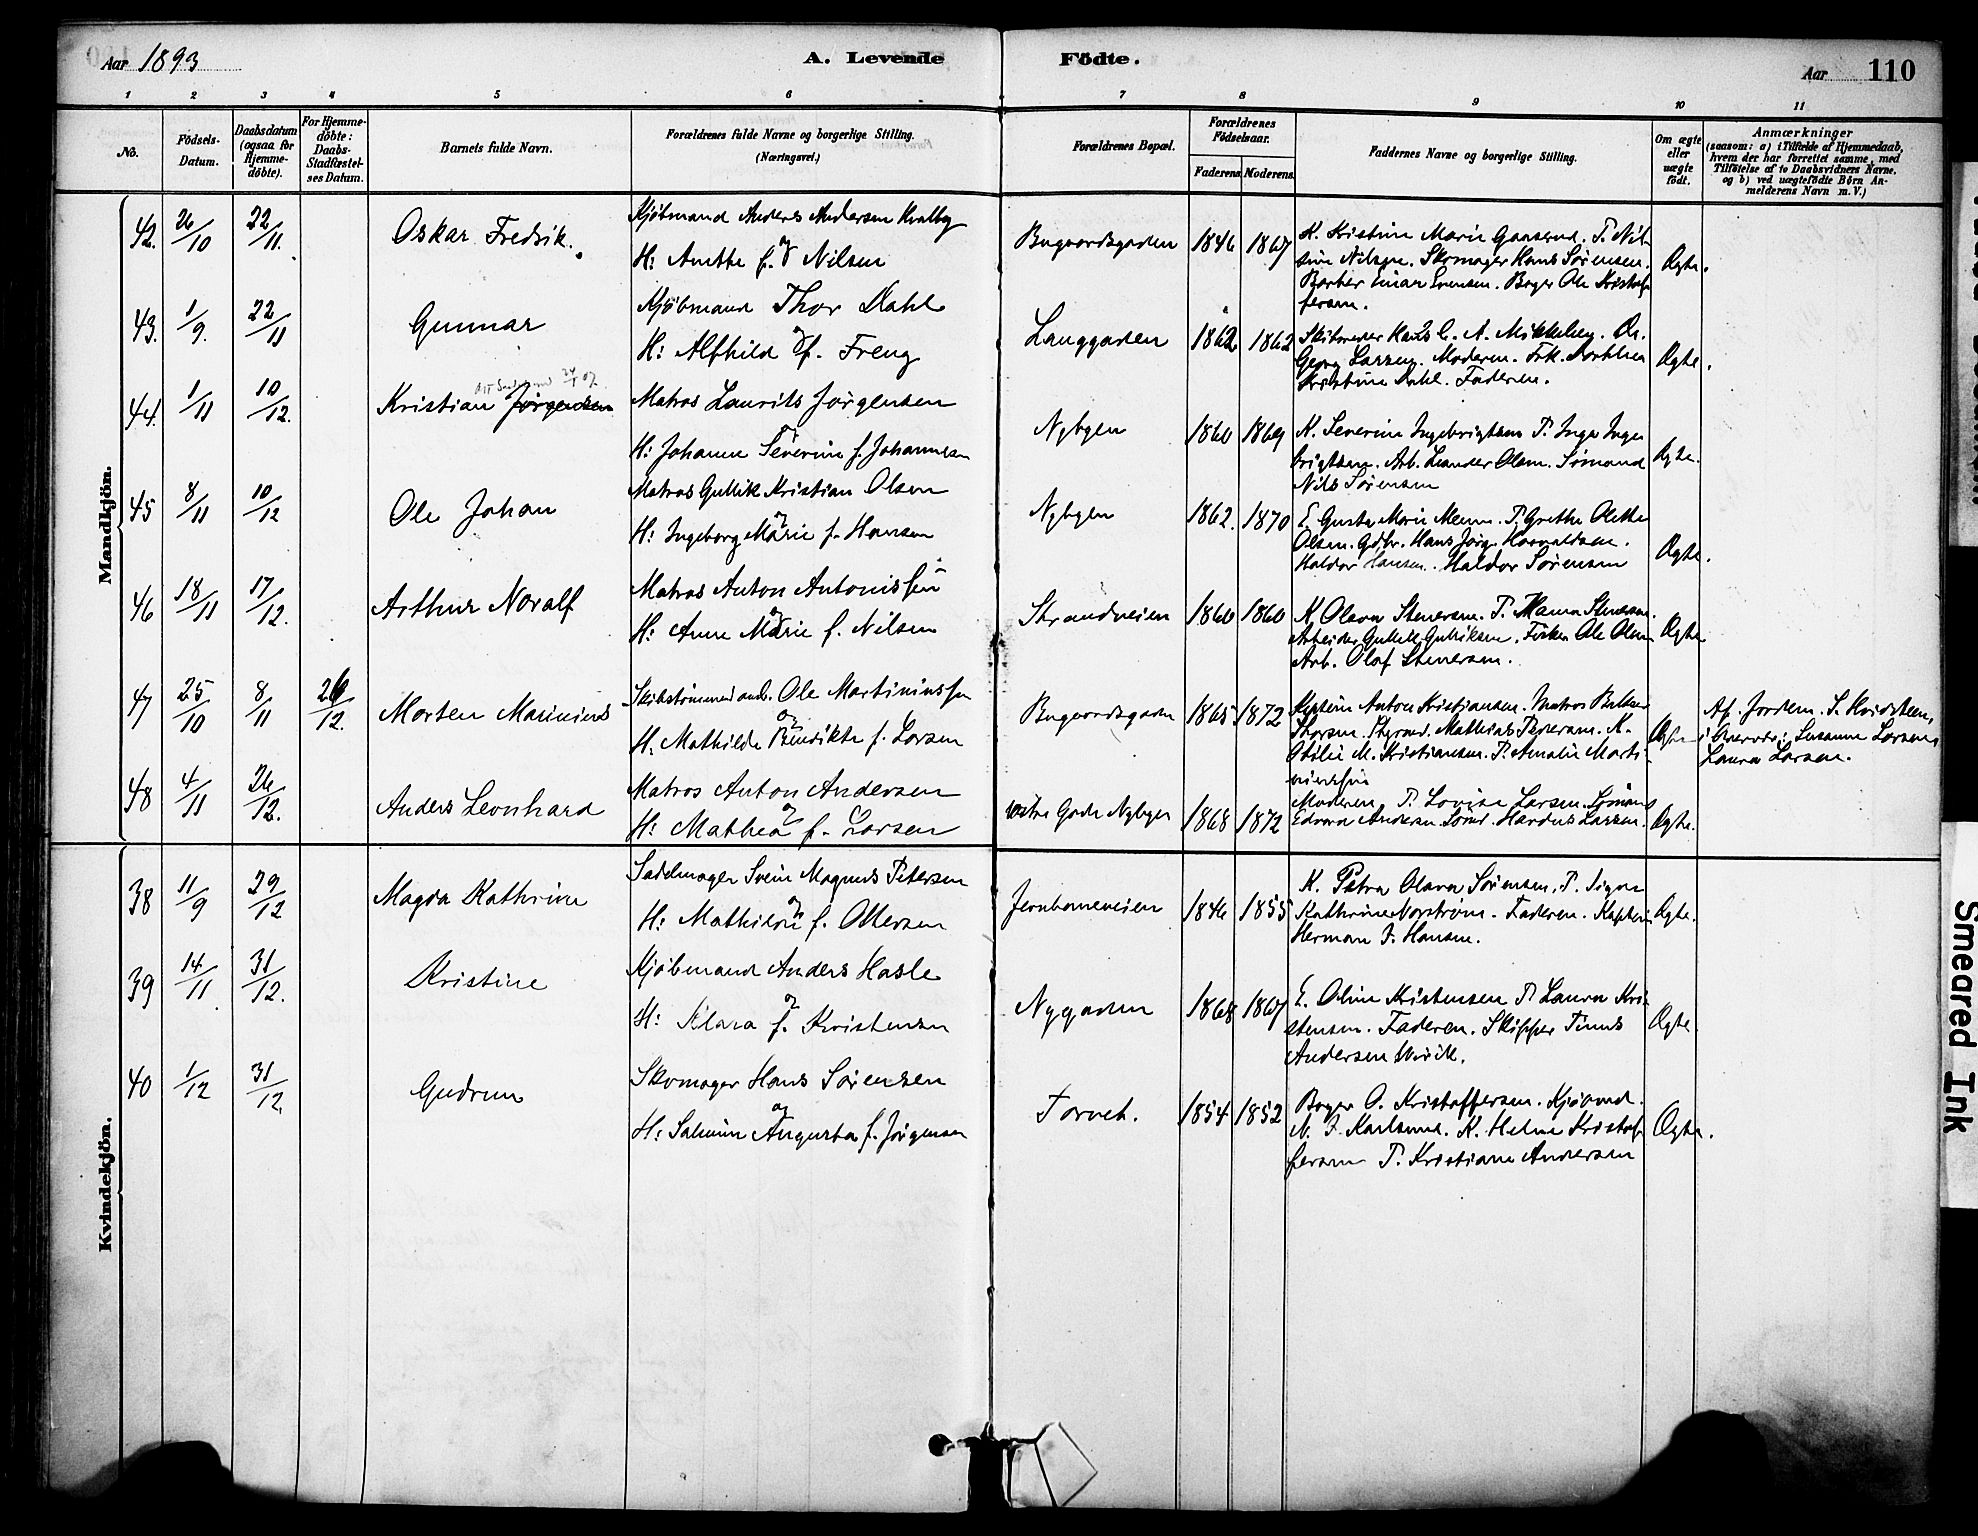 Aar 1893
A. Levende Födte.
Aar 110
1 2 3 4 5 6 7 8 9 10 11
No.
Födsels-Datum.
Daabsdatum (ogsaa för Hjemmedöbte).
For Hjemmedöbte: Daabs-Stadfæstelses Datum.
Barnets fulde Navn.
Forældrenes fulde Navne og borgerlige Stilling.
(Næringsvei.)
Forældrenes Bopæl.
Forældrenes Födselsaar.
Faderens Moderens
Faddernes Navne og borgerlige Stilling.
Om ægte eller uægte födt.
Anmærkninger
(saasom: a) i Tilfælde af Hjemmedaab,
hvem der har forrettet samme, med
Tilföielse af to Daabsvidners Navne,
og b) ved uægtefödte Börn An-
melderens Navn m. V.)
Mandkjön.
42. 26/10 22/11. Oskar Fredrik. Kjøbmand Anders Andersen Kvalby
og
H: Anette f. Nilsen
1846 1867
K. Kristine Marie Gaaserud. P. Nil-
sine Nilsen. Skomager Hans Sørensen.
Barber Einar Evensen. Bager Ole Kristof-
fersen.
Ægte.
43. 1/9. 22/11 Gunnar Kjøbmand Thor Dahl
og
H: Alfhild f. Freng
Langgaden 1862 1862
Georg Larsen. Moderen. Frk.
Kristine Dahl. Faderen.
Ægte.
44. 1/11 10/12. Kristian Jørgensen Matros Laurits Jørgensen
H: Johanne Severine f. Johannesen
Nybyen 1869
K. Severine Ingebrigtsen P. Inga Inge-
brigtsen. Arb. Leander Olsen. Sømand
Nils Sørensen
Ægte.
45 8/11 10/12 Ole Johan Matros Gullik Kristian Olsen
og
H: Ingeborg Marie f. Hansen
Nybyen 1862. 1870
P. Grethe Olette
Olsen. Hans Jørg.
Haldor Hansen. Haldor Sørensen
Ægte.
46 18/11 17/12. Arthur Noralf Matros Anton Antonissen
og
H: Anne Marie f. Nilsen
Strandveien 1860 1860
K. Olava Stenersen. P.
Arbeider Gullik Gulliksen. Fisker Ole Olsen
Arb. Olaf Stenersen.
Ægte
47 25/10 8/11 26/12. Morten Marinius Skibstømmermand. Ole Martiniussen
og
H. Mathilde Bendikte f. Larsen
1865 1872
Kaptein Anton Kristiansen. Matros
Styrmd. Mathias K.
Otilie M. Kristiansen. P. Amalie Marti-
niussen
Ægte
Af Jordem. S. Kvidsteen,
Susanne Larsen,
Laura Larsen.
48 4/11 26/12. Anders Leonhard Matros Anton Andersen
og
H: Mathea f. Larsen
Nybyen 1868 1872
Moderen P. Lovise Larsen. Sømand
Edvard Andersen Sømd. Larsen.
Ægte.
Kvindekjön.
38 11/9 29/12 Magda Kathrine Sadelmager Svein Magnus Petersen
og
H: Mathilde f. Ottersen
Jernbaneveien 1846 1855
K. Petra Olava Sørensen. P. Signe
Kathrine Norstrøm. Faderen. Kaptein
Herman J. Hansen.
Ægte.
39 14/11 31/12. Kristine Kjøbmand Anders Hasle
og
H: Klara f. Kristensen
Nygaden 1868 1867
E. Oline Kristensen P. Laura Kri-
stensen. Faderen. Skipper Tinus
Andersen Virik.
Ægte
40 1/12 31/12. Gudrun Skomager Hans Sørensen
og
H: Saluine Augusta f. Jørgensen
Torvet. 1854 1852
Bager O. Kristoffersen. Kjøbmd.
N. J. Karlsund. K. Helene Kristof-
fersen P. Kristiane Andersen
Ægte.
Smeared Ink